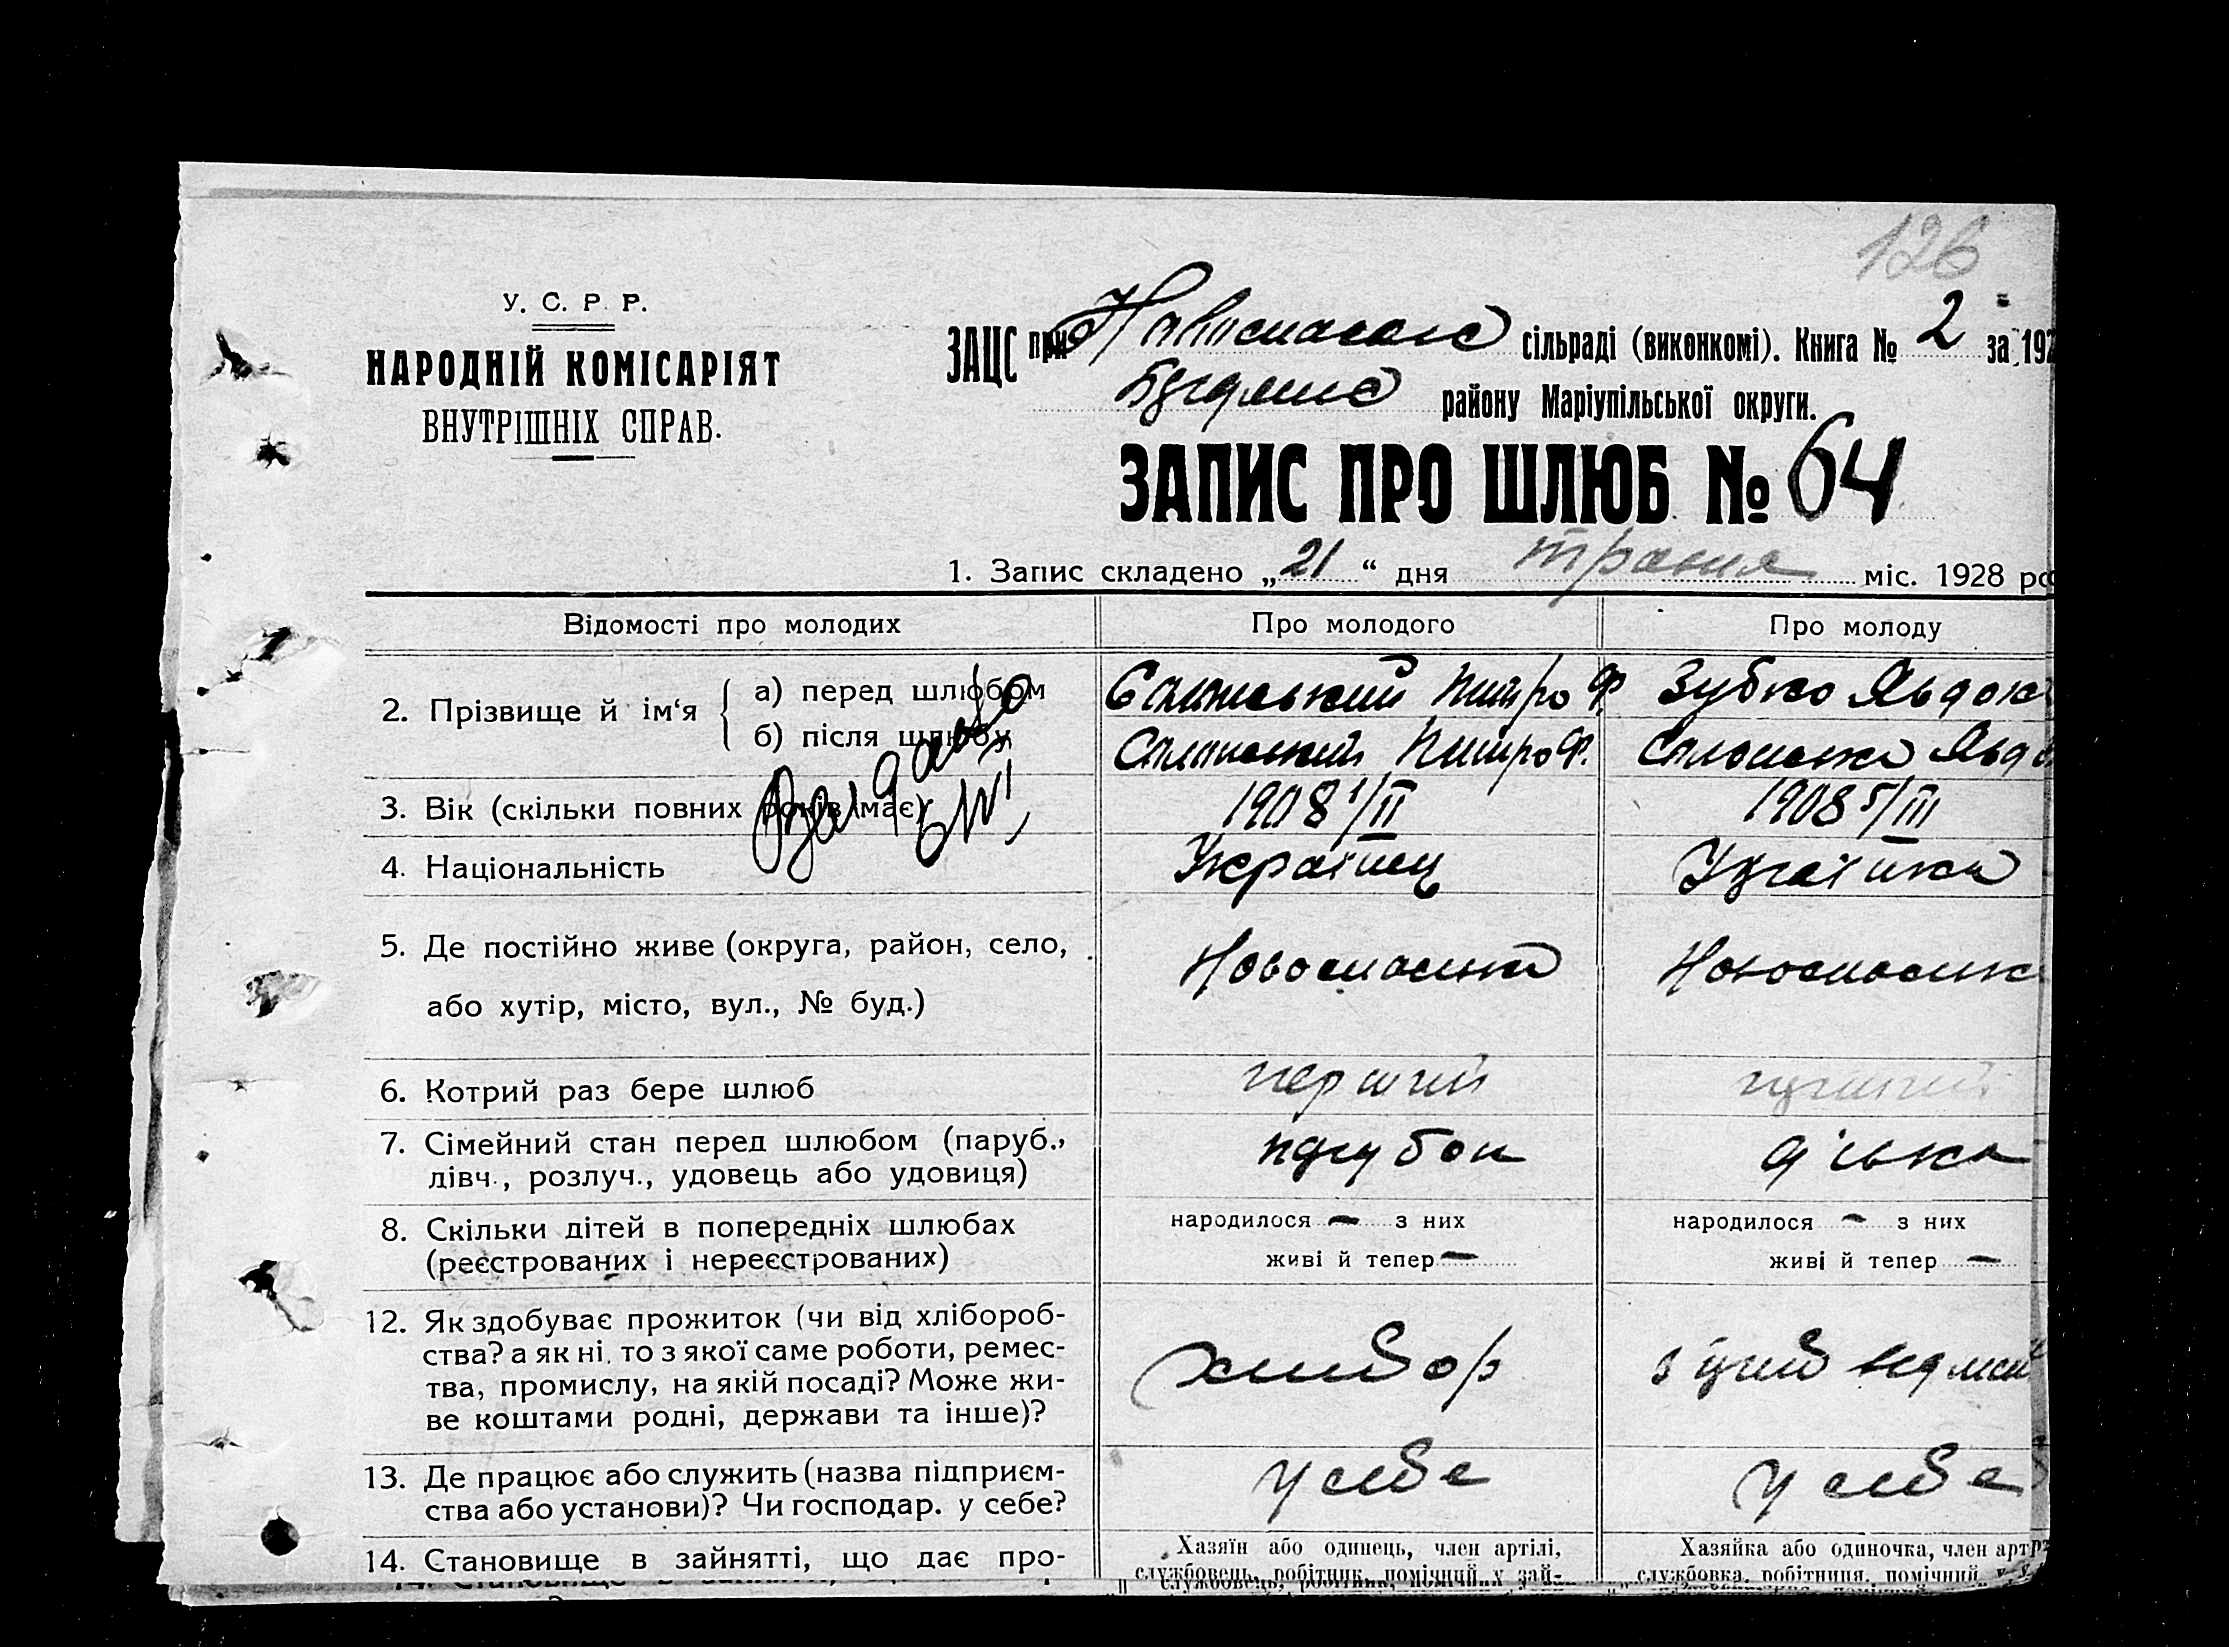 126
У. С. Р. Р.
НАРОДНІЙ КОМІСАРІЯТ
ВНУТРІШНІХ СПРАВ.
ЗАЦС при сільраді (виконкомі). Книга № 2 за 192
району Маріупільської округи.
ЗАПИС ПРО ШЛЮБ № 64
1. Запис складено „21“ дня травня міс. 1928 ро
Відомості про молодих Про молодого Про молоду
2. Прізвище й ім‘я
а) перед шлюбом Зубко Явдок
б) після шлюбу
3. Вік (скільки повних років має) 1908 1/II 1908 5/III
4. Національність Українець Українка
5. Де постійно живе (округа, район, село,
або хутір, місто, вул., № буд.)
Новоспасівка Новоспасівк
6. Котрий раз бере шлюб перший перший
7. Сімейний стан перед шлюбом (паруб.,
дівч., розлуч., удовець або удовиця)
парубок дівка
8. Скільки дітей в попередніх шлюбах
(реєстрованих і нереєстрованих)
народилося — з них
живі й тепер —
народилося — з них
живі й тепер —
12. Як здобуває прожиток (чи від хлібороб-
ства? а як ні, то з якої саме роботи, ремес-
тва, промислу, на якій посаді? Може жи-
ве коштами родні, держави та інше)?
хлібор
13. Де працює або служить (назва підприєм-
ства або установи)? Чи господар. у себе?
у себе у себе
14. Становище в зайнятті, що дає про-
Хазяїн або одинець, член артілі,
службовець, робітник, помічний у зай-
Хазяйка або одиночка, член арт
службовка, робітниця, помічний у